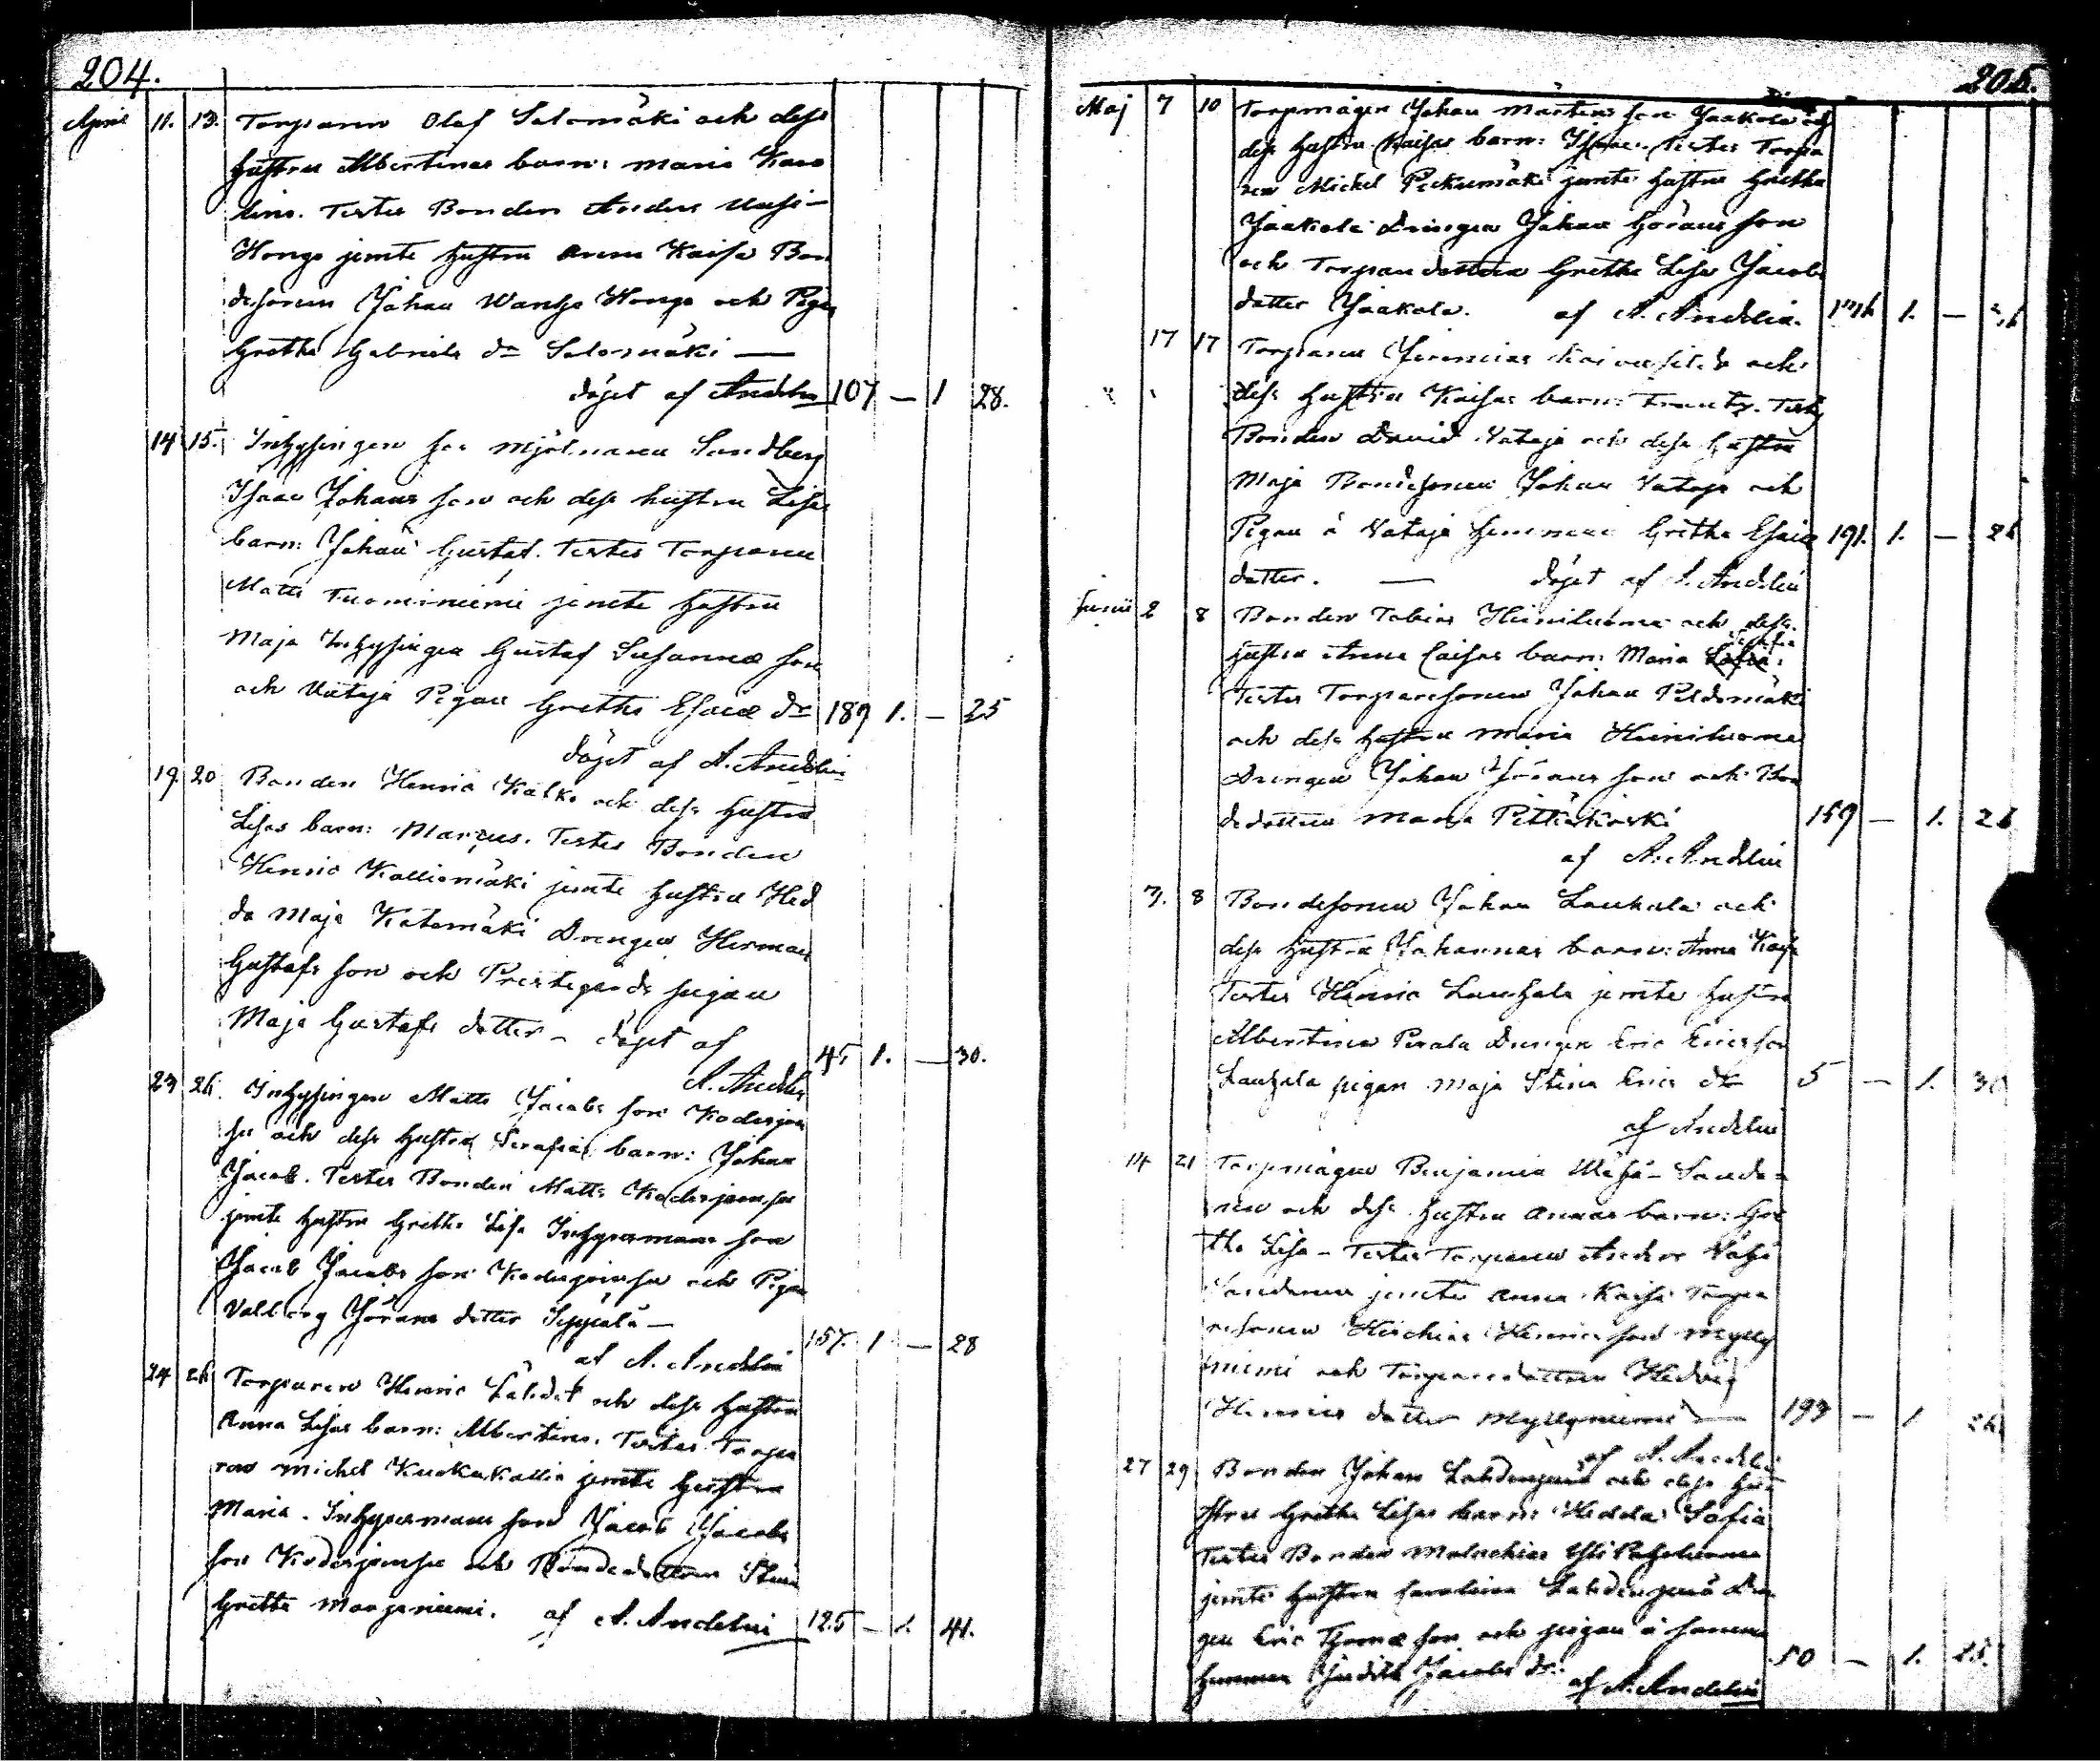 204.
April 11. 13. Torparen Olaf Salomäki och dess
hustru Albertinas barn: Maria Karo
lina. Testes Bonden Anders Uusi-
Hongo jemte hustru Anna Kaisa Bon
desonen Johan Wanha Hongo och Pigan
Gretha Gabriels dr Salomäki —
döpt af Andelin 107 — 1 28.
14 15. Inhysingen hos mjölnaren Sandberg
Isaac Johans son och dess hustru Lisas
barn: Johan Gustaf. Testes Torparen
Matts Tuominiemi jemte hustru
Maja Inhysingen Gustaf Susannæ son
och Vataja Pigan Gretha Esaiæ dr 189 1. — 25
döpt af A. Andelin
19. 20 Bonden Henric Kalko och dess hustru
Lisas barn: Marcus. Testes Bonden
Henric Kalliomäki jemte hustru Hed
da Maja Katamäki Drengen Herman
Gustafs son och Prestegårds pigan
Maja Gustafs dotter — döpt af
A. Andelin 45 1. — 30.
23 26. Inhysingen Matts Jacobs son Koderjoen
su och dess hustru Serafias barn: Johan
Jacob. Testes Bonden Matts
jemte hustru Gretha Lisa Inhysesmans son
Jacob Jacobs son och Pigan
Valborg Jörans dotter Seppälä —
af A. Andelin 157. 1 — 28
24 26 Torparen Henric och dess hustru
Anna Lisas barn: Albertina. Testes Torpa
ren Michel Kuokukallio jemte hustru
Maria. Inhysesmans son Jacob Jacobs
son och Bondedottern Stina
Gretha Marjaniemi. af A. Andelin 125 — 1. 41.
205.
Maj 7 10 Torpmågen Johan Mårtens son Jaakola och
dess hustru Kaisas barn: Isaac. Testes Torpa
ren Michel Peckumäki jemte hustru Gretha
Jaakola Drengen Johan Görans son
och Torparedottern Gretha Lisa Jacobs
dotter Jaakola. af A. Andelin. 1. —
17 17 Torparen Jeremias och
dess hustru Kaisas barn: Frantz. Testes
Bonden David Vataja och dess hustru
Maja Bondesonen Johan Vataja och
Pigan å Vataja hemman Gretha Esaiæ 191. 1. — 26
dotter. — döpt af A. Andelin
Junii 2 8 Bonden Tobias Heiniluoma och dess
hustru Anna Caisas barn: Maria Serafia.
Testes Torparesonen Johan Peldomäki
och dess hustru Maria Heiniluoma
Drengen Johan Jörans son och Bon
dedottern Maria Pitkäkoski 159 — 1. 26
af A. Andelin
3. 8 Bondesonen Johan Lauhala och
dess hustru Johannas barn: Anna Kaisa
Testes Henric Lauhala jemte hustru
Albertina Perala Drengen Eric Ericsson
Lauhala pigan Maja Stina Erics dr 5 — 1. 30
af Andelin
14 21 Torpmågen Benjamin Wähä-Sanda-
nen och dess hustru Annas barn: Gre
tha Lisa — Testes Torparen Anders Wähä
Sandanen jemte Anna Kaisa Torpa
resonen Henrics son Mylly
niemi och Torparedottern Hedvig
Henrics dotter Myllyniemi — 193 — 1 26
af A. Andelin
27 29 Bonden Johan och dess hu-
stru Gretha Lisas barn: Hedda Sofia
Testes Bonden Malachias Yli Pahaluoma
jemte hustru Carolina Dren
gen Eric Thomæ son och pigan å samma
hemman Judith Jacobs dr. 50 — 1. 25.
af A. Andelin